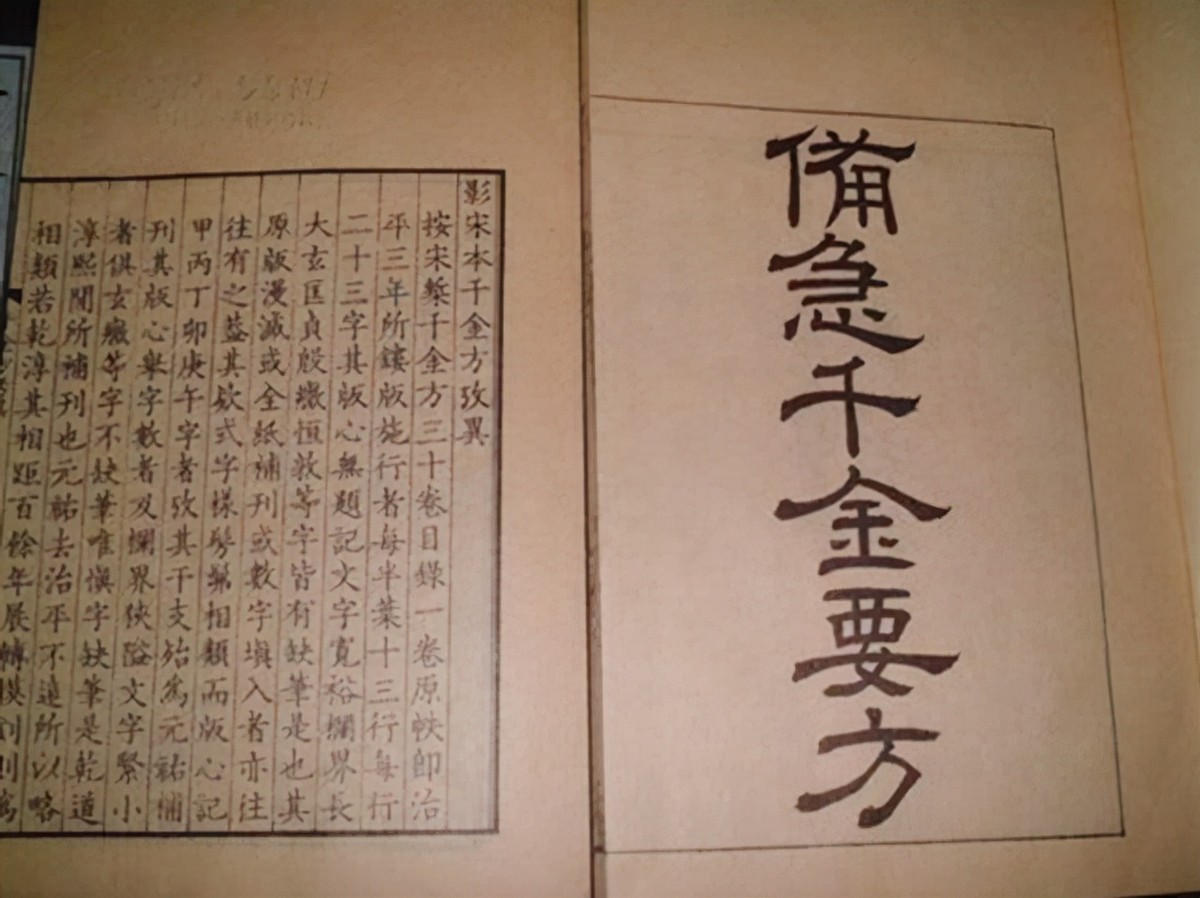 備急千金要方
影宋本千金方攷異
按宋槧千金方三十卷目錄一卷原帙卽治
平三年所鏤版施行者每半葉十三行每行
二十三字其版心無題記文字寬裕欄界長
大玄匡貞殷徵恒敦等字皆有缺筆是也其
原版漫滅或全紙補刊或數字塡入者亦往
往有之葢其欵式字樣髣髴相類而版心記
甲丙丁卯庚午字者攷其干支殆爲元祐補
刊其版心舉字數者及欄界狹隘文字緊小
者俱玄徵等字不缺筆唯愼字缺筆是乾道
淳熙閒所補刊也元祐去治平不遠所以略
相類若乾淳其相距百餘年展轉